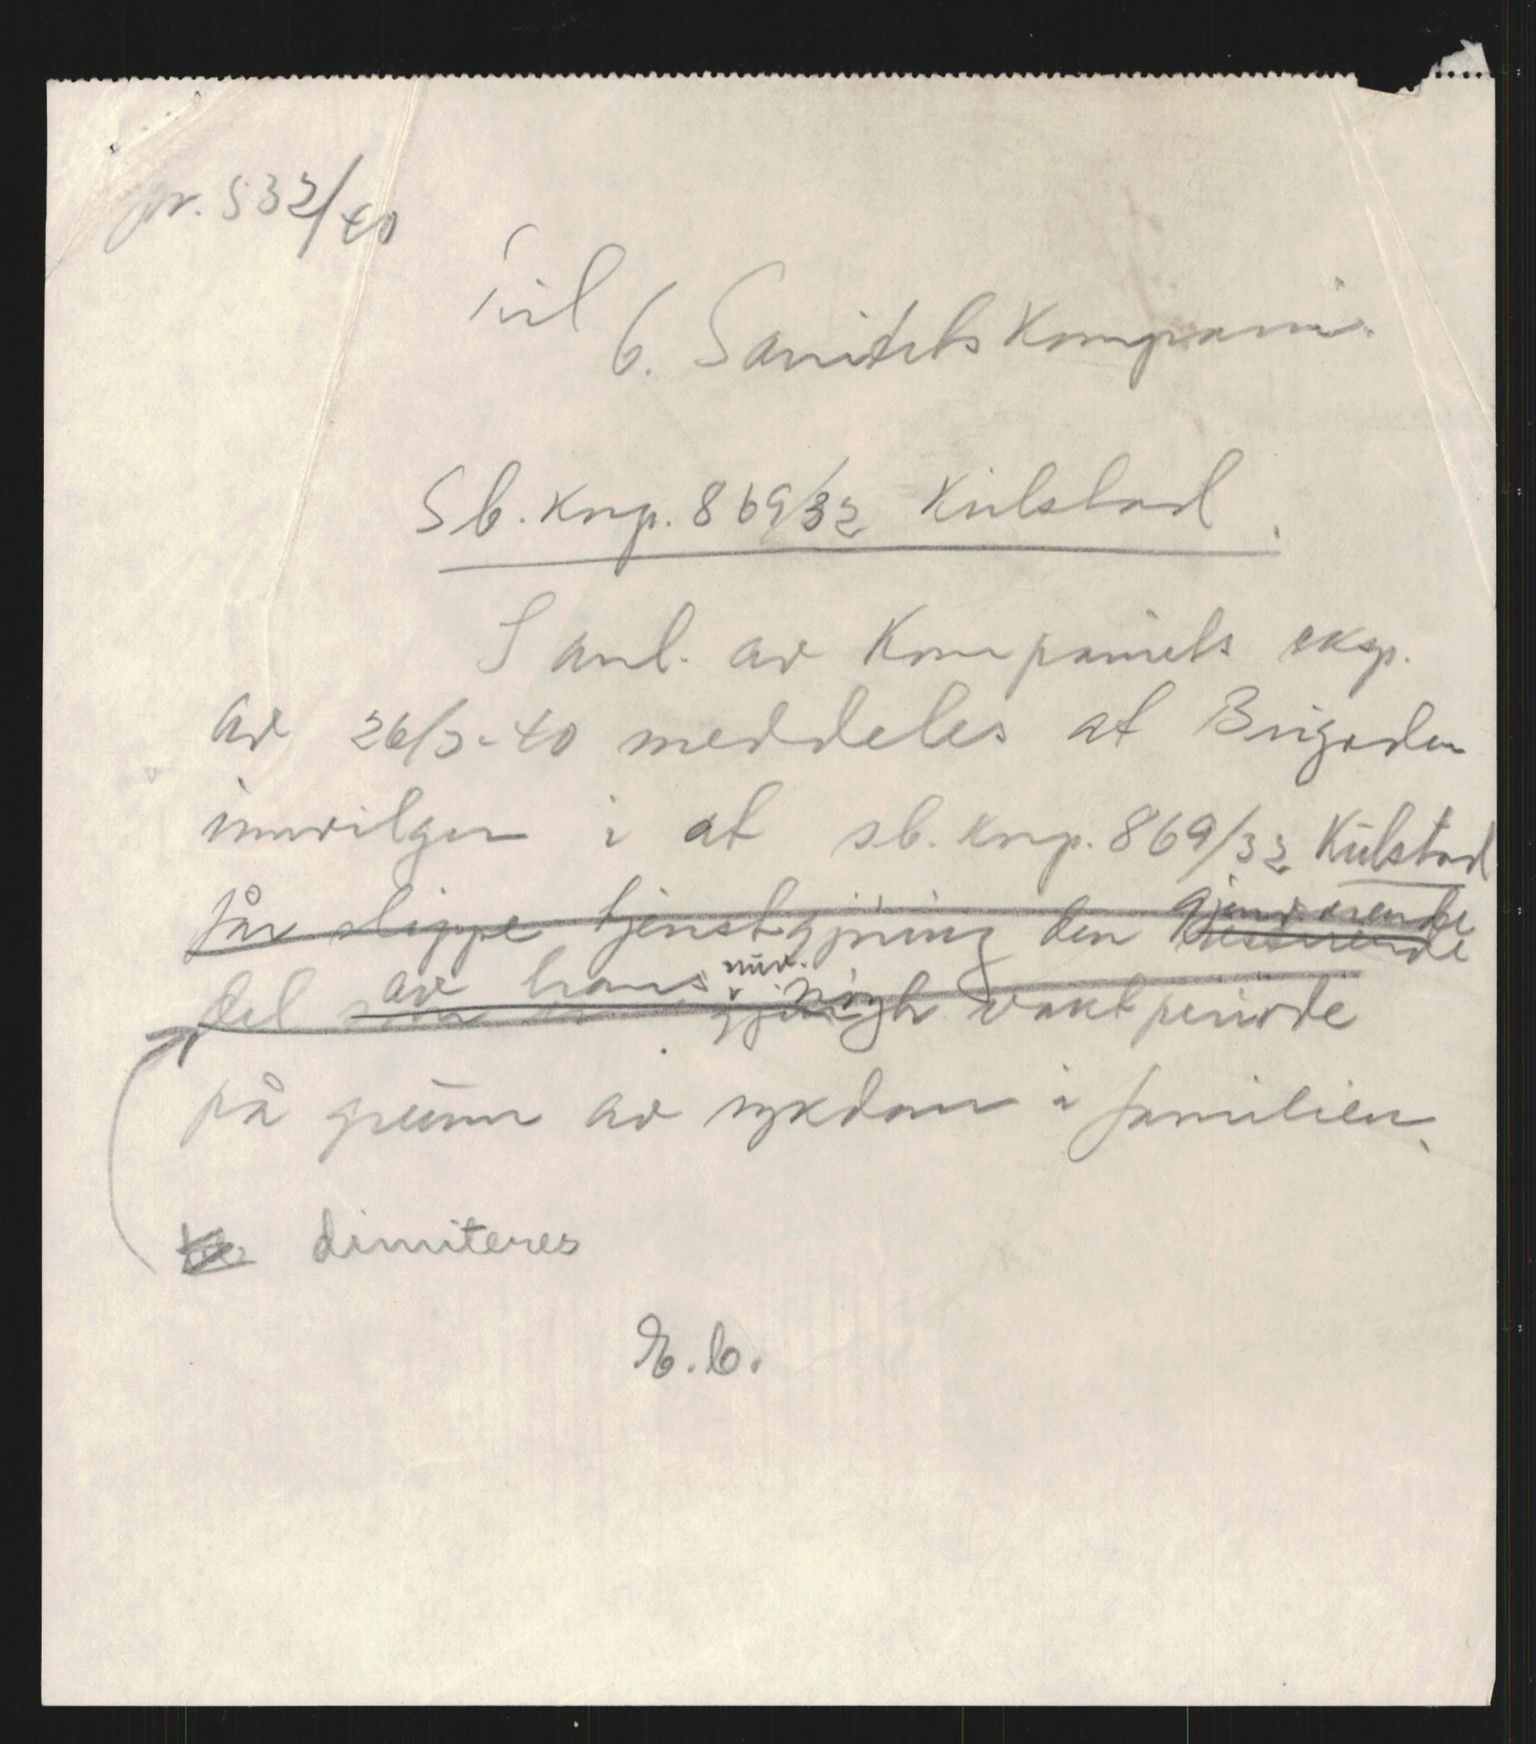 Jnr. 532/40
Til
6. Sanitetskompani.
Sb. Knp. 869/32 Kulstad.
I anl. av Kompaniets eksp.
av 26/3-40 meddeles at Brigaden
innvilger i at sb. knp. 869/32 Kulstad
får slippe tjenstgjøring den gjenværende
del av hans nuv. nøytr. vaktperiode
på grunn av sykdom i familien.
dimiteres
E.b.